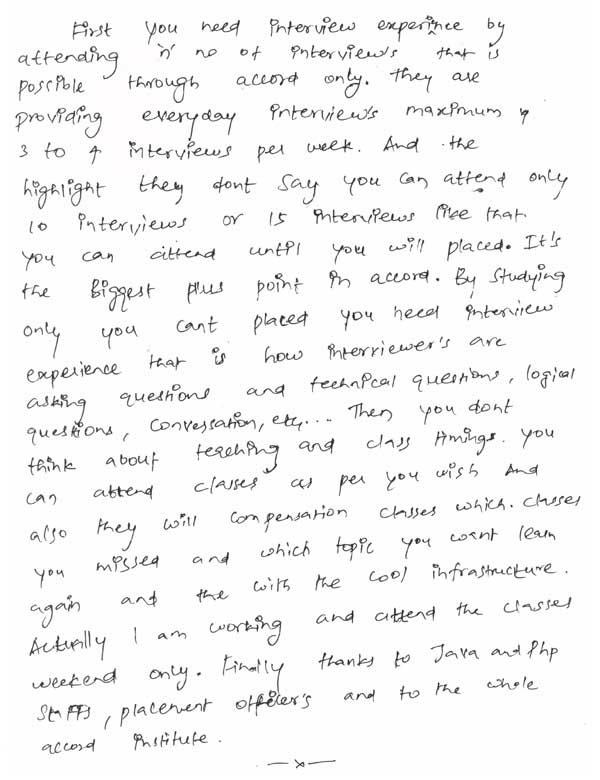 First you need interview experience by
attending 'n' no of interview's that is
possible through accord only. they are
providing everyday interview's maximum
3 to 4 interviews per week. And the
highlight they dont say you can attend only
10 interviews or 15 interviews like that
you can attend until you will placed. It's
the Biggest plus point in accord. By studying
only you cant placed you need interview
experience that is how interviewer's are
asking questions and technical questions, logical
questions, conversation, etc,... Then you dont
think about teaching and class timings. you
can attend classes as per you wish And
also they will compensation classes which. classes
you missed and which topic you want learn
again and the with the cool infrastructure.
Actually I am working and attend the classes
weekend only. Finally thanks to Java and Php
Staffs, placement officer's and to the whole
accord institute.
—x—